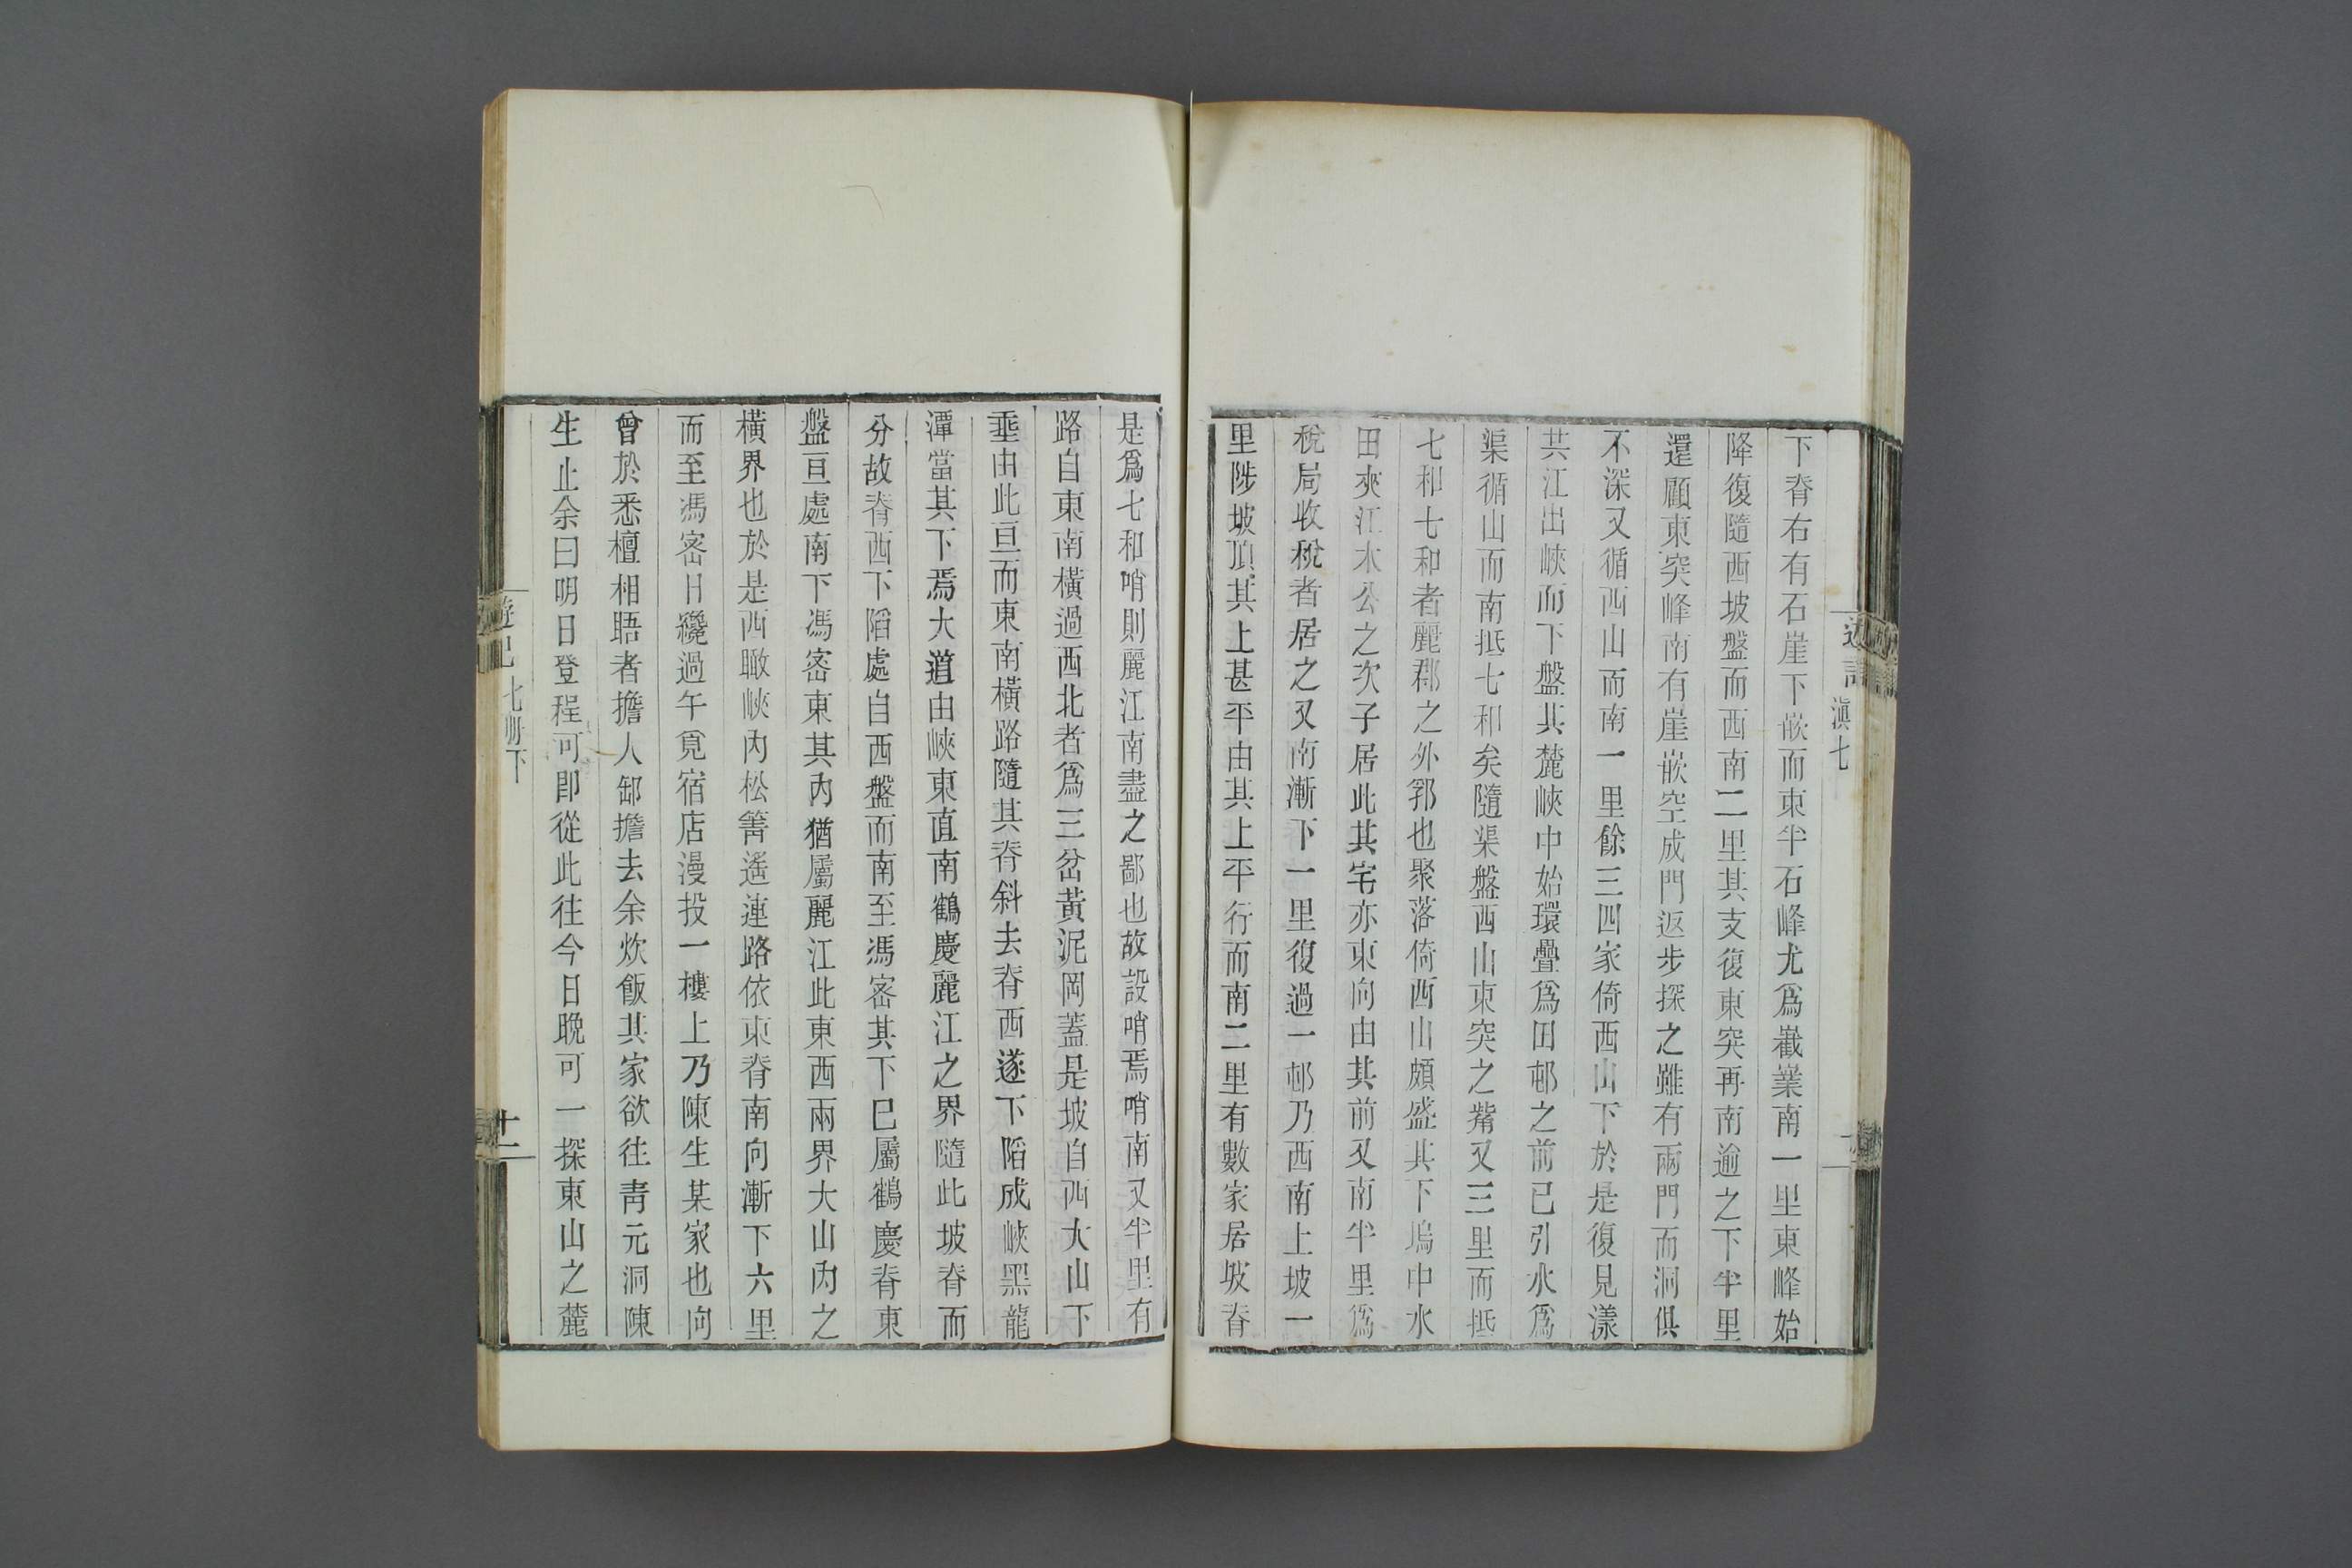 滇七
下脊右有石崖下嵌而東半石峰尤爲嶻嶪南一里東峰始
降復隨西坡盤而西南二里其支復東突再南逾之下半里
還顧東突峰南有崖嵌空成門返步探之雖有兩門而洞俱
不深又循西山而南一里餘三四家倚西山下於是復見漾
共江出峽而下盤其麓峽中始環疊爲田邨之前已引水爲
渠循山而南抵七和矣隨渠盤西山東突之觜又三里而抵
七和七和者麗郡之外郛也聚落倚西山頗盛其下塢中水
田夾江木公之次子居此其宅亦東向由其前又南半里爲
稅局收稅者居之又南漸下一里復過一邨乃西南上坡一
里陟坡頂其上甚平由其上平行而南二里有數家居坡脊
是爲七和哨則麗江南盡之鄙也故設哨焉哨南又半里有
路自東南橫過西北者爲三岔黃泥岡蓋是坡自西大山下
垂由此亘而東南橫路隨其脊斜去脊西遂下陷成峽黑龍
潭當其下焉大道由峽東直南鶴慶麗江之界隨此坡脊而
分故脊西下陷處自西盤而南至馮密其下已屬鶴慶脊東
盤亘處南下馮密東其內猶屬麗江此東西兩界大山內之
橫界也於是西瞰峽內松箐遙連路依東脊南向漸下六里
而至馮密日纔過午覓宿店漫投一樓上乃陳生某家也向
曾於悉檀相晤者擔人卸擔去余炊飯其家欲往靑元洞陳
生止余曰明日登程可卽從此往今日晚可一探東山之麓
遊記 七册下
十一